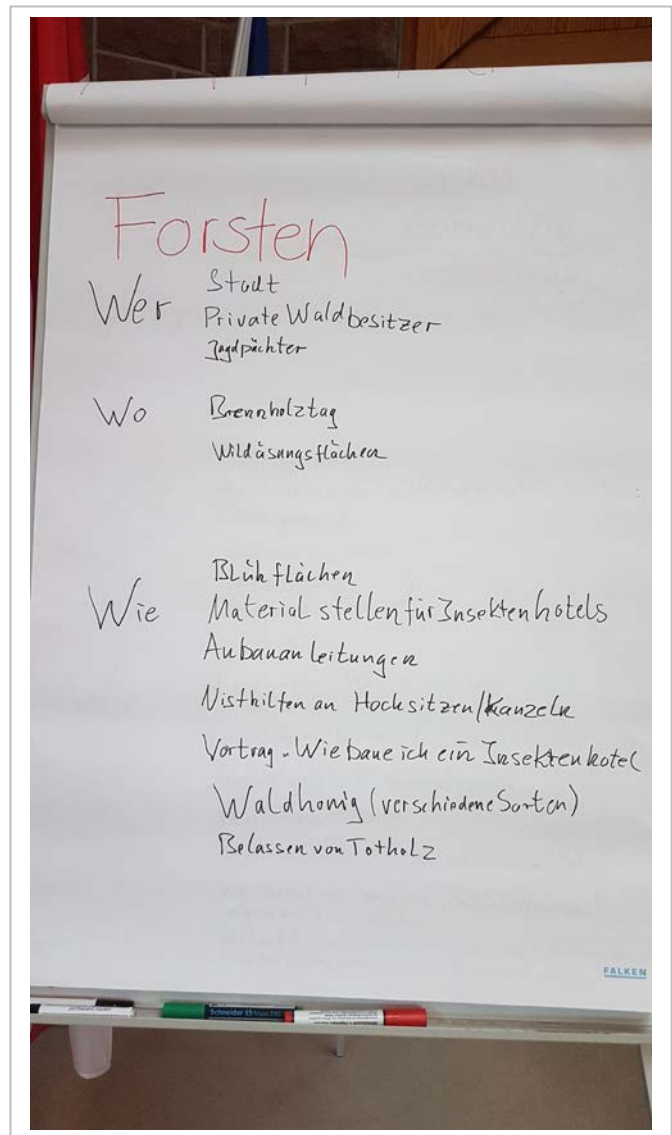 Forsten
Wer
Stadt
Private Waldbesitzer
Jagdpächter
Wo
Brennholztag
Wildäsungsflächen
Wie
Blühflächen
Material stellen für Insektenhotels
Anbauanleitungen
Nisthilfen an Hochsitzen/Kanzeln
Vortrag. Wie baue ich ein Insektenhotel
Waldhonig (verschiedene Sorten)
Belassen von Totholz
FALKEN
Schneider